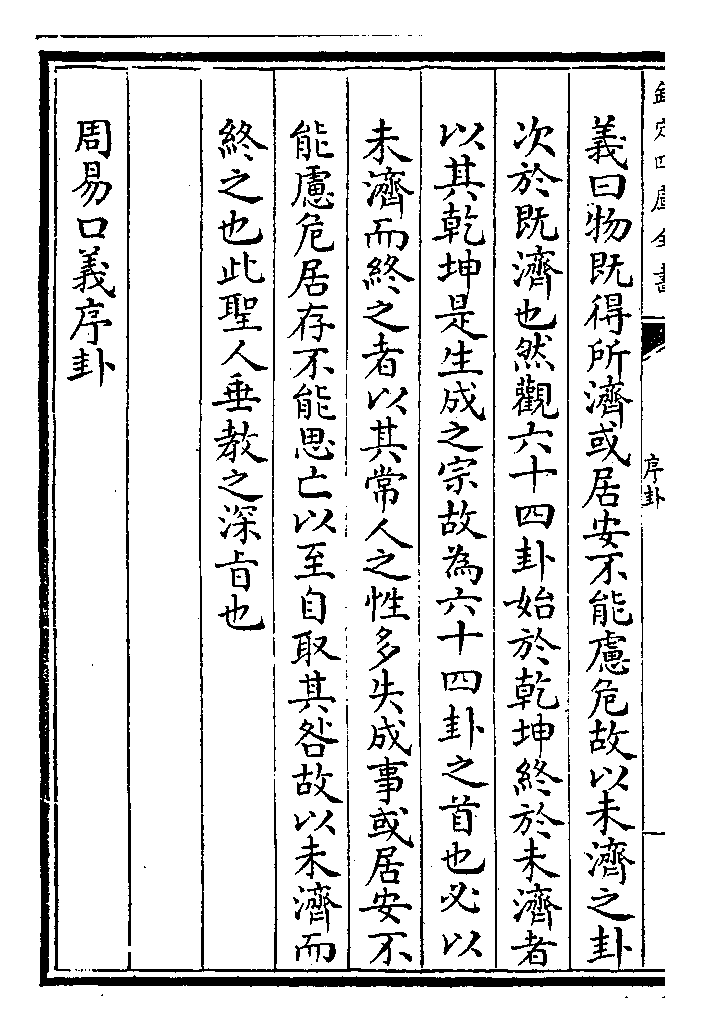 欽定四庫全書
序卦
義曰物既得所濟或居安不能慮危故以未濟之卦
次於既濟也然觀六十四卦始於乾坤終於未濟者
以其乾坤是生成之宗故為六十四卦之首也必以
未濟而終之者以其常人之性多失成事或居安不
能慮危居存不能思亡以至自取其咎故以未濟而
終之也此聖人垂教之深旨也
周易口義序卦